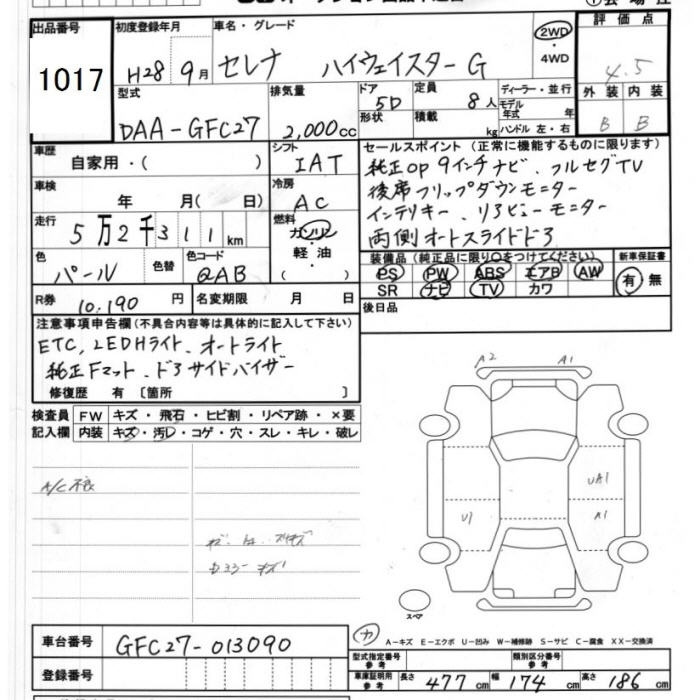 出品番号 初度登録年月 車名・グレード 2WD 評価点
1017 H28 9月 セレナ ハイウェイスターG ・ 4WD 4.5
型式 排気量 ドア 5D 定員 8人 ディーラー・並行 外装 内装
DAA-GFC27 2,000cc 形状 積載 kg モデル年式 年 ハンドル 左・右 B B
車歴 自家用・( ) シフト IAT セールスポイント(正常に機能するものに限ります)
車検 年 月( 日) 冷房 AC 純正OP 9インチナビ、フルセグTV
後席フリップダウンモニター
走行 5万2千311km 燃料 ガソリン インテリキー、リアビューモニター
軽油・( ) 両側オートスライドドア
色 パール 色替 色コード QAB 装備品(純正品に限り○をつけてください) 新車保証書
PS PW ABS エアB AW 有・無
R券 10,190円 名変期限 月 日 SR ナビ TV カワ
注意事項申告欄(不具合内容等は具体的に記入して下さい) 後日品
ETC, LEDHライト、オートライト
純正Fマット、ドアサイドバイザー
修復歴 有 〔箇所 〕 A2 A1
検査員 FW キズ・飛石・ヒビ割・リペア跡・×要
記入欄 内装 キズ・汚レ・コゲ・穴・スレ・キレ・破レ
A/C不良 UA1
U1 A1
スペア
A-キズ E-エクボ U-凹み W-補修跡 S-サビ C-腐食 XX-交換済
車台番号 GFC27-013090
登録番号 型式指定番号 参考 類別区分番号 参考
車庫証明用 参考 長さ 477cm 幅 174cm 高さ 186cm